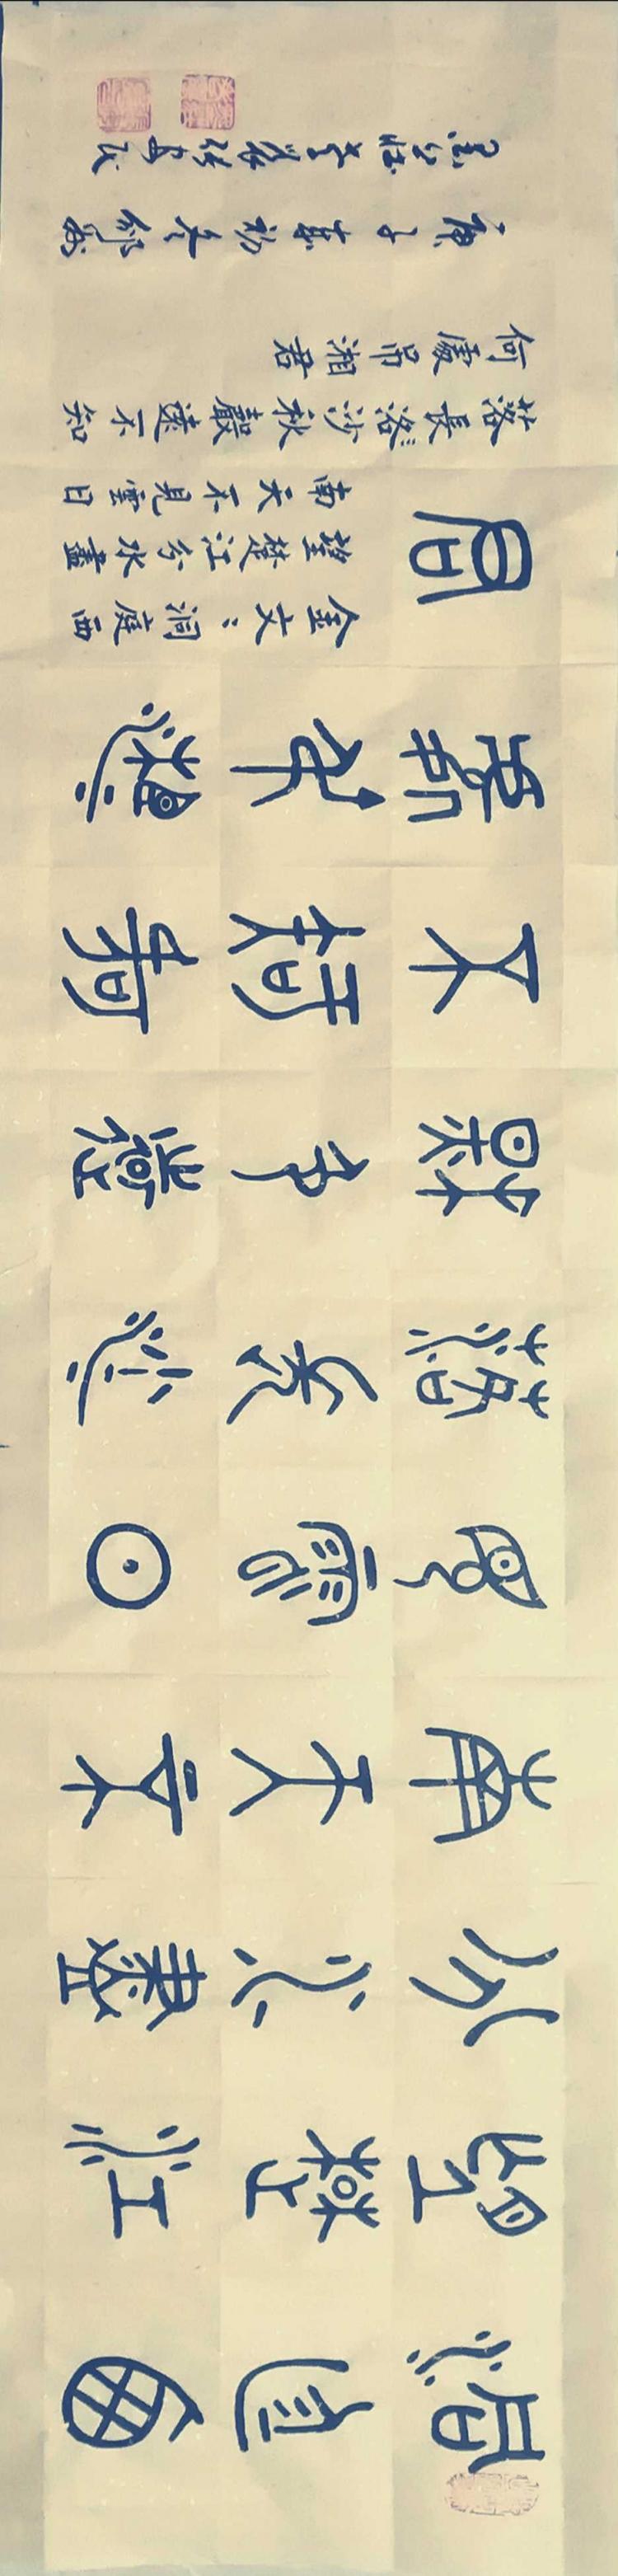 洞庭西
望楚江
分水盡
南天不
見雲日
落長沙
秋色遠
不知何
處弔湘
君
金文:洞庭西
望楚江分水盡
南天不見雲日
落長洛沙秋嚴遠不知
何處吊湘君
庚子初冬